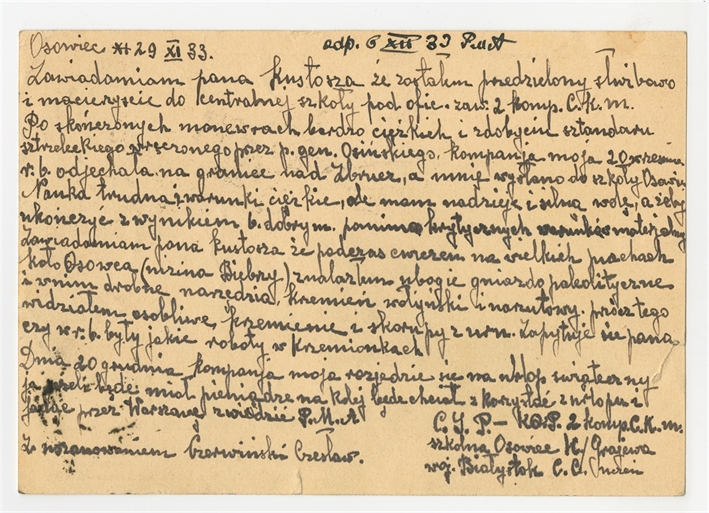 Osowiec 29 XI 33.
odp. 6 XII 33 P.M.A
Zawiadamiam pana kustosza że zostałem przedzielony służbowo
i macierzyście do Centralnej szkoły pod ofic. zaw. 2 komp. C.k.m.
Po skończonych manewrach bardzo ciężkich i zdobyciu sztandaru
strzeleckiego wręczonego przez p. gen. Osińskiego, kompanja moja 20 września
r. b. odjechała na granicę nad Zbrucz, a mnie wysłano do szkoły Osowiec
Nauka trudna i warunki ciężkie, ale mam nadzieję i silną wolę, ażeby
ukończyć z wynikiem b. dobrym. pomimo krytycznych warunków materjalny
Zawiadamiam pana kustosza że podczas ćwiczeń na wielkich piachach
koło Osowca (nizina Biebrzy) znalazłem ubogie gniazdo paleolityczne
i w nim drobne narzędzia, kremień wołyński i narzutowy. prócz tego
widziałem osobliwe krzemienie i skorupy z urn. Zapytuje się pana
czy w r. b. były jakie roboty w Krzemionkach
Dnia 20 grudnia kompanja moja rozjedzie się na urlop świąteczny
ja jeżeli będę miał pieniądze na kolej będę chciał skorzystać z urlopu i
jadąc przez Warszawę zwiedzić P.M.A
Z uszanowaniem Czerwiński Czesław.
K.O.P. 2 komp. C.K.m.
szkolna Osowiec K/Grajewa
woj. Białystok